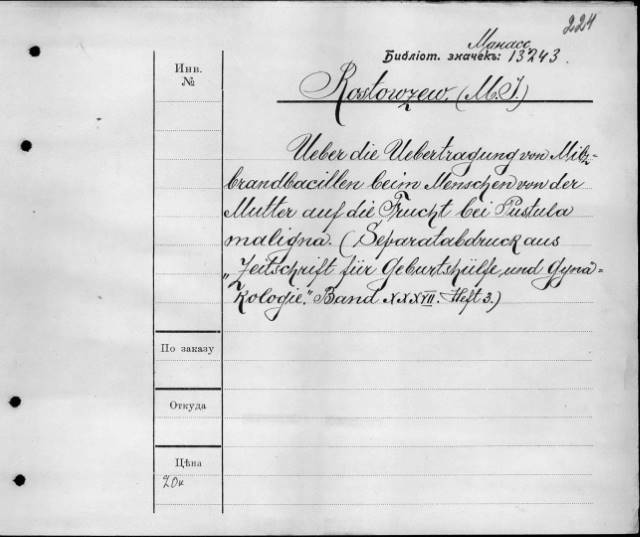 224
Манасс.
Библіот. значекъ: 13243.
Инв.
№
Rostowzew. (M. J.)
Ueber die Uebertragung von Milz-
brandbacillen beim Menschen von der
Mutter auf die Frucht bei Pustula
maligna. (Separatabdruck aus
„Zeitschrift für Geburtshülfe und Gynä-
kologie." Band XXXVII. Heft 3.)
По заказу
Откуда
Цѣна
20к